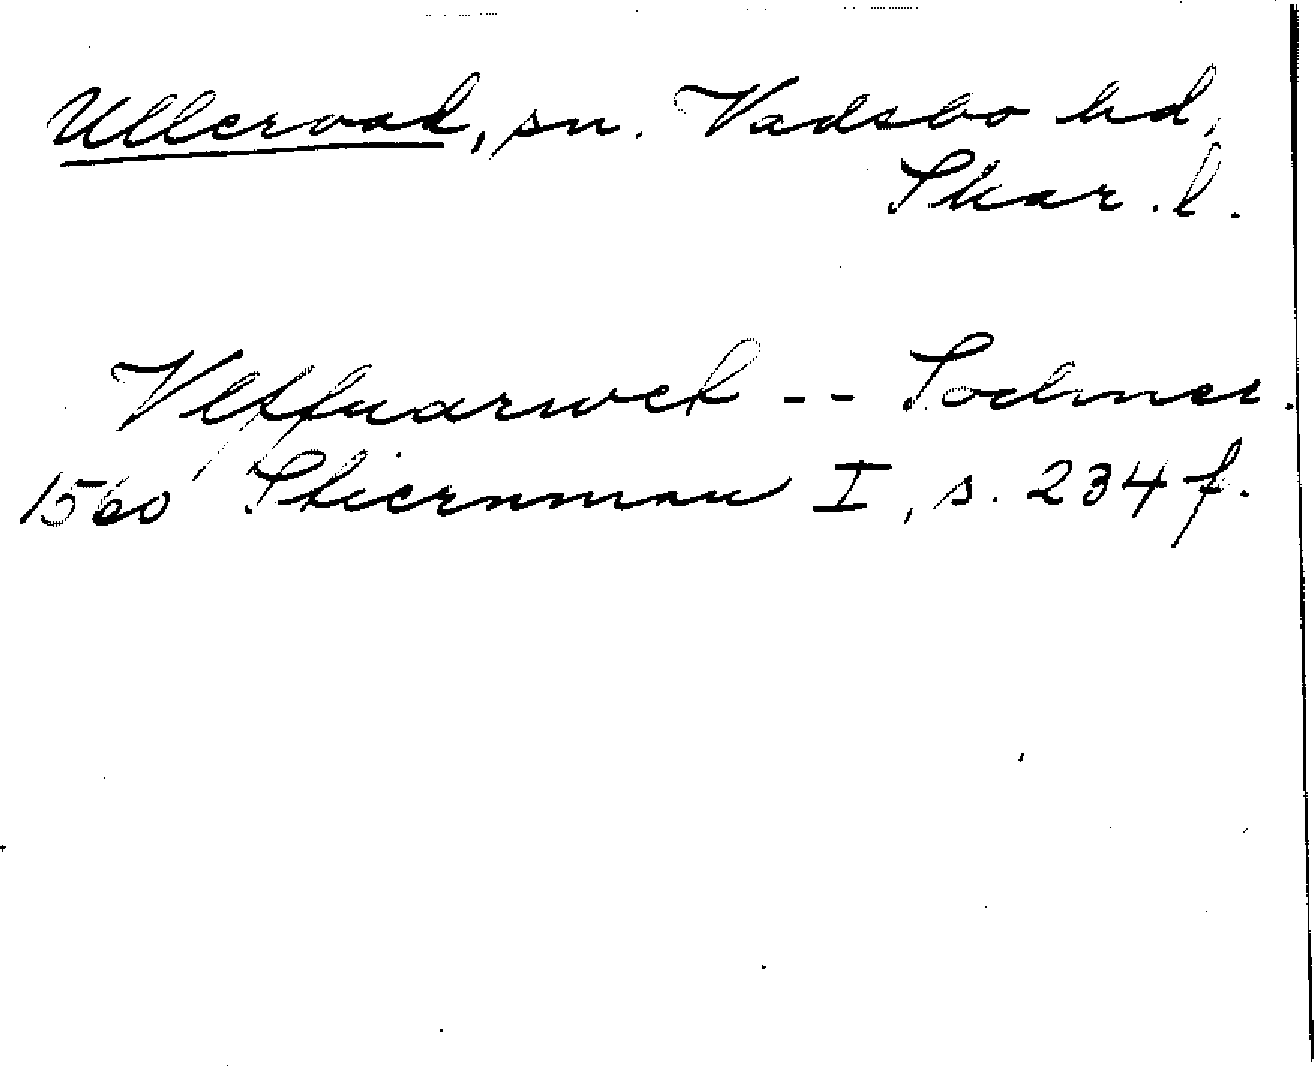 Ullervad, sn. Vadsbo hd,
Skar. l.
Vlffuarwed -- Sochner.
1560 Stiernman I, s. 234 f.